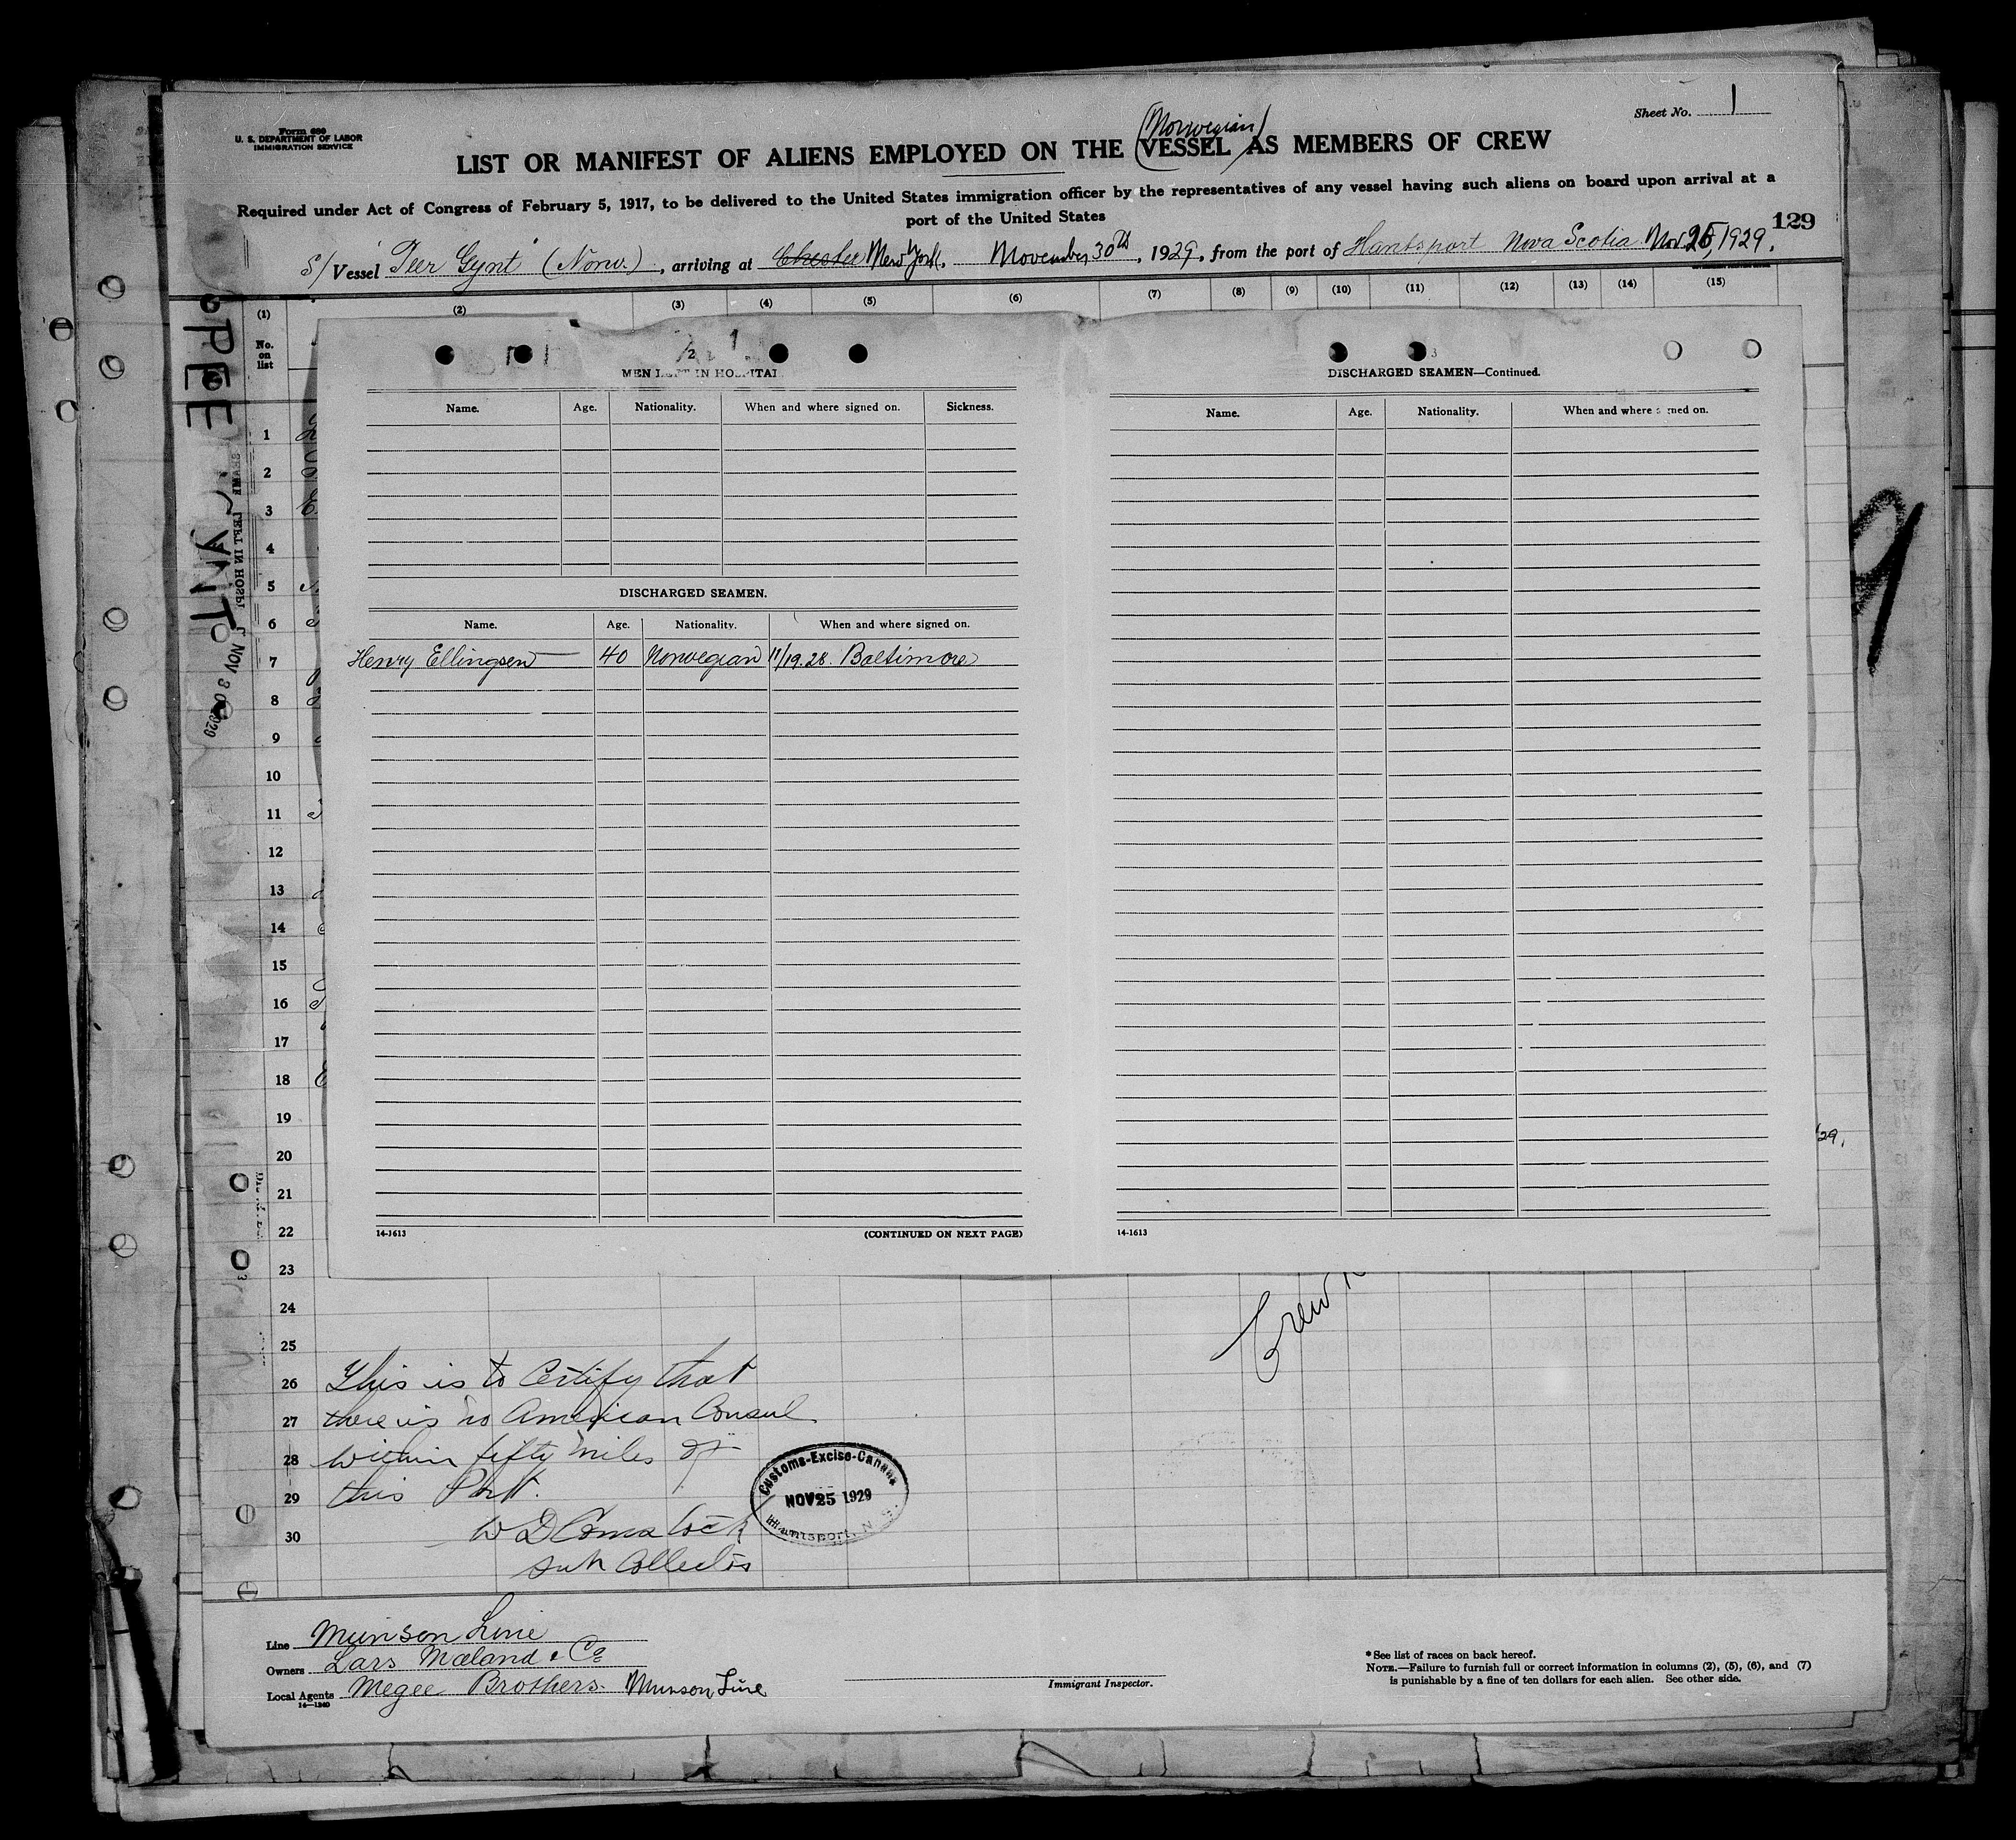 Form 680
U. S. DEPARTMENT OF LABOR
IMMIGRATION SERVICE
Sheet No. 1
(Norwegian)
LIST OR MANIFEST OF ALIENS EMPLOYED ON THE VESSEL AS MEMBERS OF CREW
Required under Act of Congress of February 5, 1917, to be delivered to the United States immigration officer by the representatives of any vessel having such aliens on board upon arrival at a
port of the United States
129
S/ Vessel "Peer Gynt" (Norw.), arriving at Chester New York, November 30th, 1929, from the port of Hantsport Nova Scotia Nov. 25, 1929.
(1) (2) (3) (4) (5) (6) (7) (8) (9) (10) (11) (12) (13) (14) (15)
No. on list
NOV 30 1929
MEN LEFT IN HOSPITAL
Name. Age. Nationality. When and where signed on. Sickness.
DISCHARGED SEAMEN.
Name. Age. Nationality. When and where signed on.
Henry Ellingsen 40 Norwegian 11/19.28. Baltimore
14-1613 (CONTINUED ON NEXT PAGE)
DISCHARGED SEAMEN—Continued.
Name. Age. Nationality. When and where signed on.
14-1613
1
2
3
4
5
6
7
8
9
10
11
12
13
14
15
16
17
18
19
20
21
22
23
24
25
26
27
28
29
30
'29.
Crew
This is to Certify that
there is no American Consul
within fifty miles of
this Port.
W D Comstock
Sub Collector
Customs-Excise-Canada
NOV 25 1929
Hantsport, N. S.
Line Munson Line
Owners Lars Mæland & Co
Local Agents Megee Brothers. Munson Line
14—1240
Immigrant Inspector.
*See list of races on back hereof.
NOTE.—Failure to furnish full or correct information in columns (2), (5), (6), and (7)
is punishable by a fine of ten dollars for each alien. See other side.
9